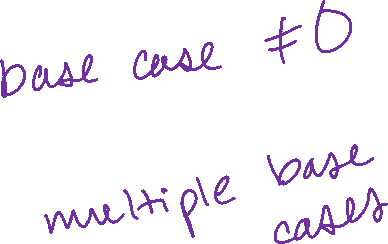 base case ≠ 0
multiple base
cases